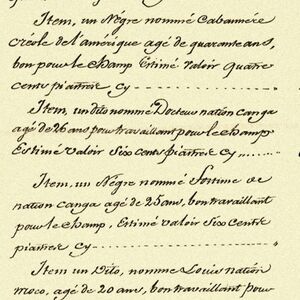 Item, un Négre nommé Cabannére
créole de l'amérique agé de quarante ans,
bon pour le champ Estimé valoir quatre
cents piastres cy
Item, un dito nommé Docteur nation canga
agé de 26 ans pour travaillant pour le champ
Estimé valoir Six cents piastres cy
Item, un Négre nommé Fortune de
nation canga agé de 25 ans, bon travaillant
pour le champ, Estimé valoir six cents
piastres cy
Item un Dito, nommé Louis nation
moco, agé de 20 ans, bon travaillant pour